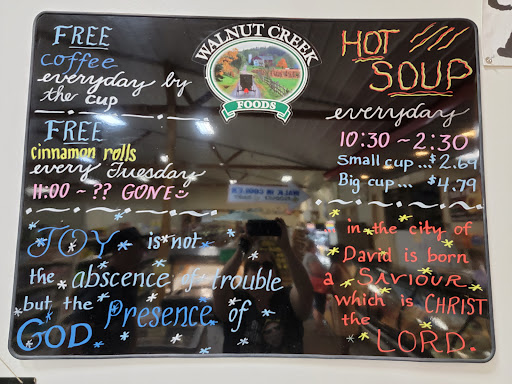 FREE
coffee
everyday by
the cup
FREE
cinnamon rolls
every Tuesday
11:00 ~ ?? GONE
JOY is not
the abscence of trouble
but the Presence of
GOD.
WALNUT CREEK
FOODS
HOT
SOUP
everyday
10:30 ~ 2:30
Small cup ... $2.69
Big cup ... $4.79
in the city of
David is born
a SAVIOUR
which is CHRIST
the
LORD.